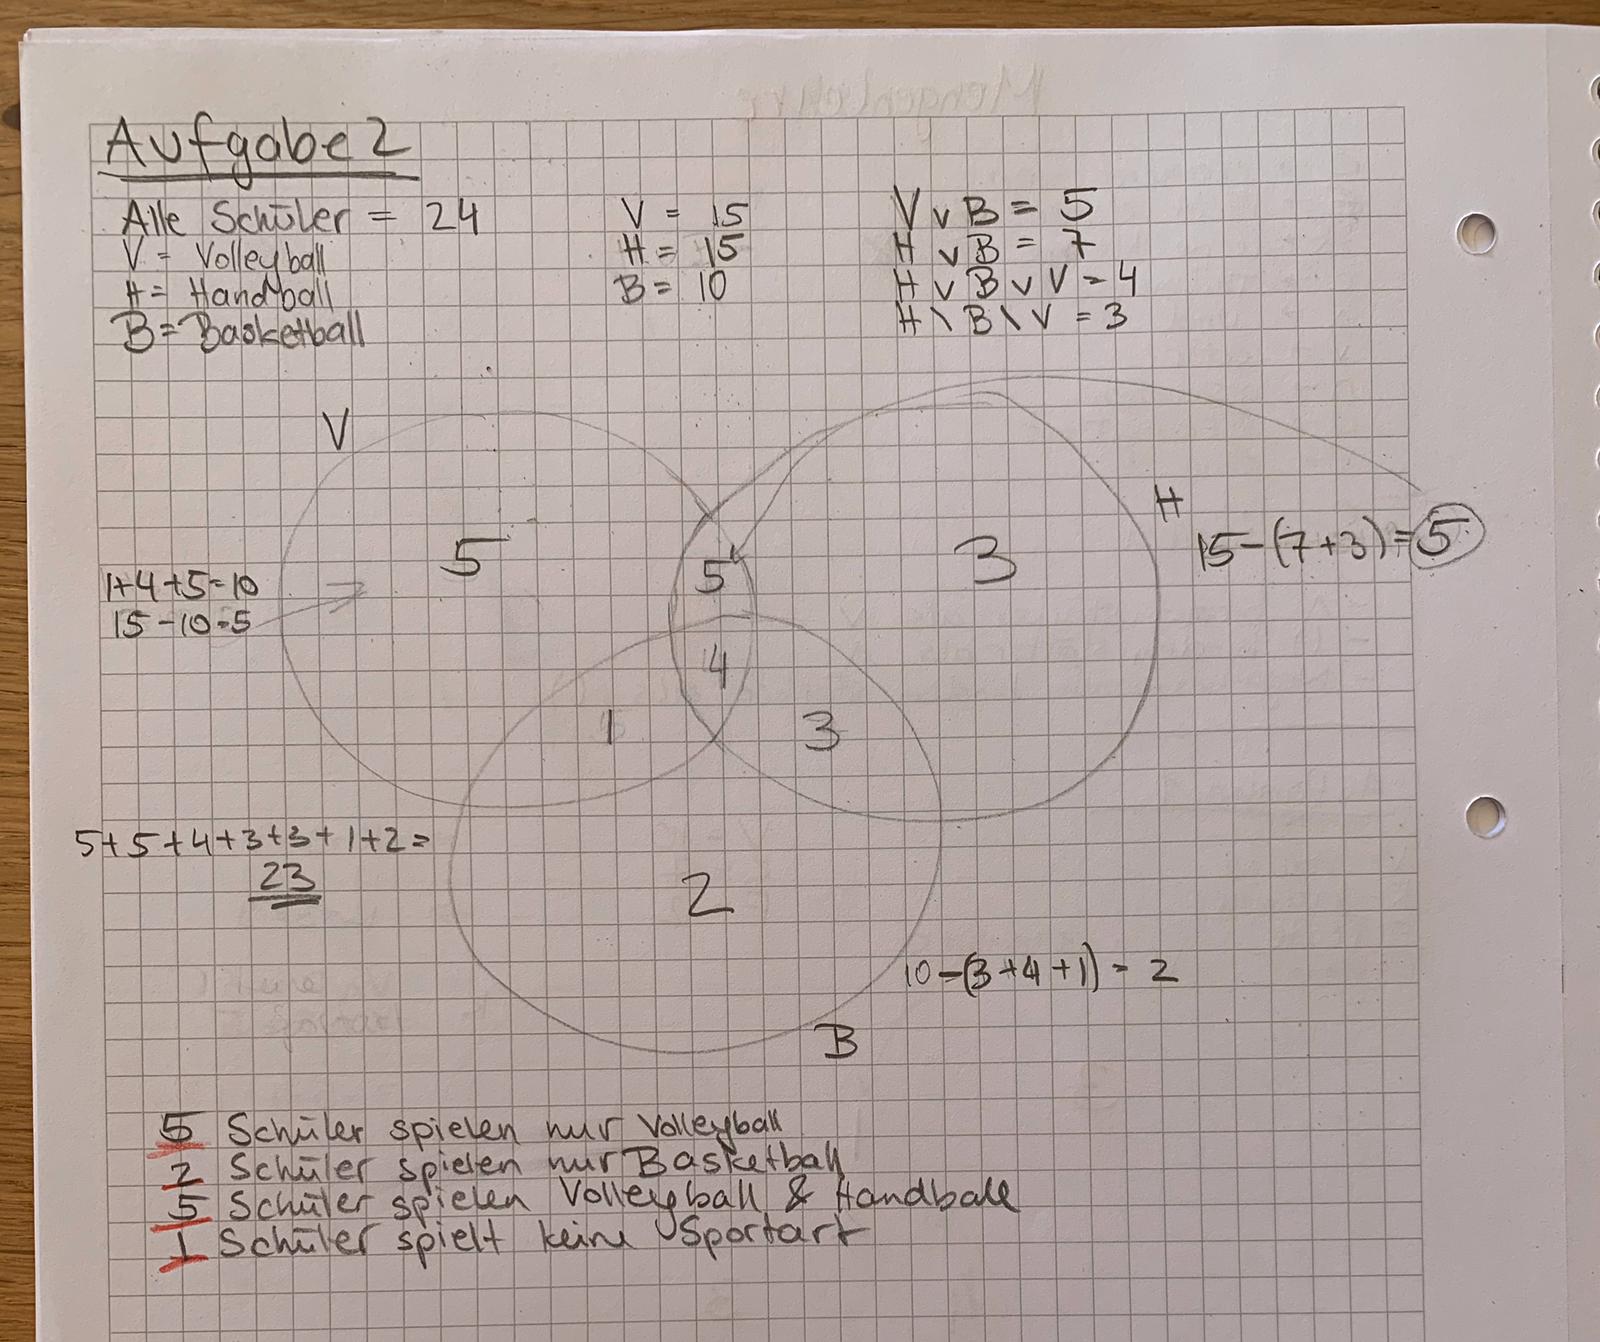 Aufgabe 2
Alle Schüler = 24
V = Volleyball
H = Handball
B = Basketball
V = 15
H = 15
B = 10
V v B = 5
H v B = 7
H v B v V = 4
H \ B \ V = 3
V
H
5
5
3
15-(7+3)=5
1+4+5=10
15-10=5
4
1
3
5+5+4+3+3+1+2=
23
2
10-(3+4+1) = 2
B
5 Schüler spielen nur Volleyball
2 Schüler spielen nur Basketball
5 Schüler spielen Volleyball & Handball
1 Schüler spielt keine Sportart